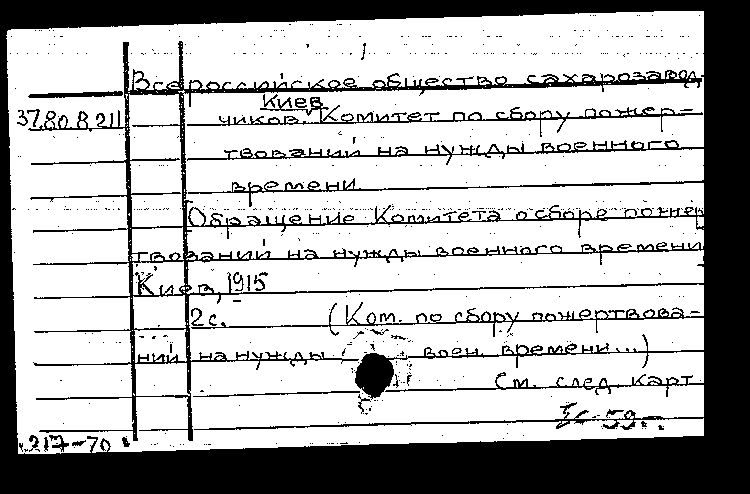 Всероссийское общество сахарозавод-
Киев
37.80.8.211 чиков. Комитет по сбору пожер-
твований на нужды военного
времени.
[Обращение Комитета о сборе пожер
твований на нужды военного времени
Киев, 1915
2с. (Ком. по сбору пожертвова-
ний на нужды воен. времени...)
См. след. карт
217-70